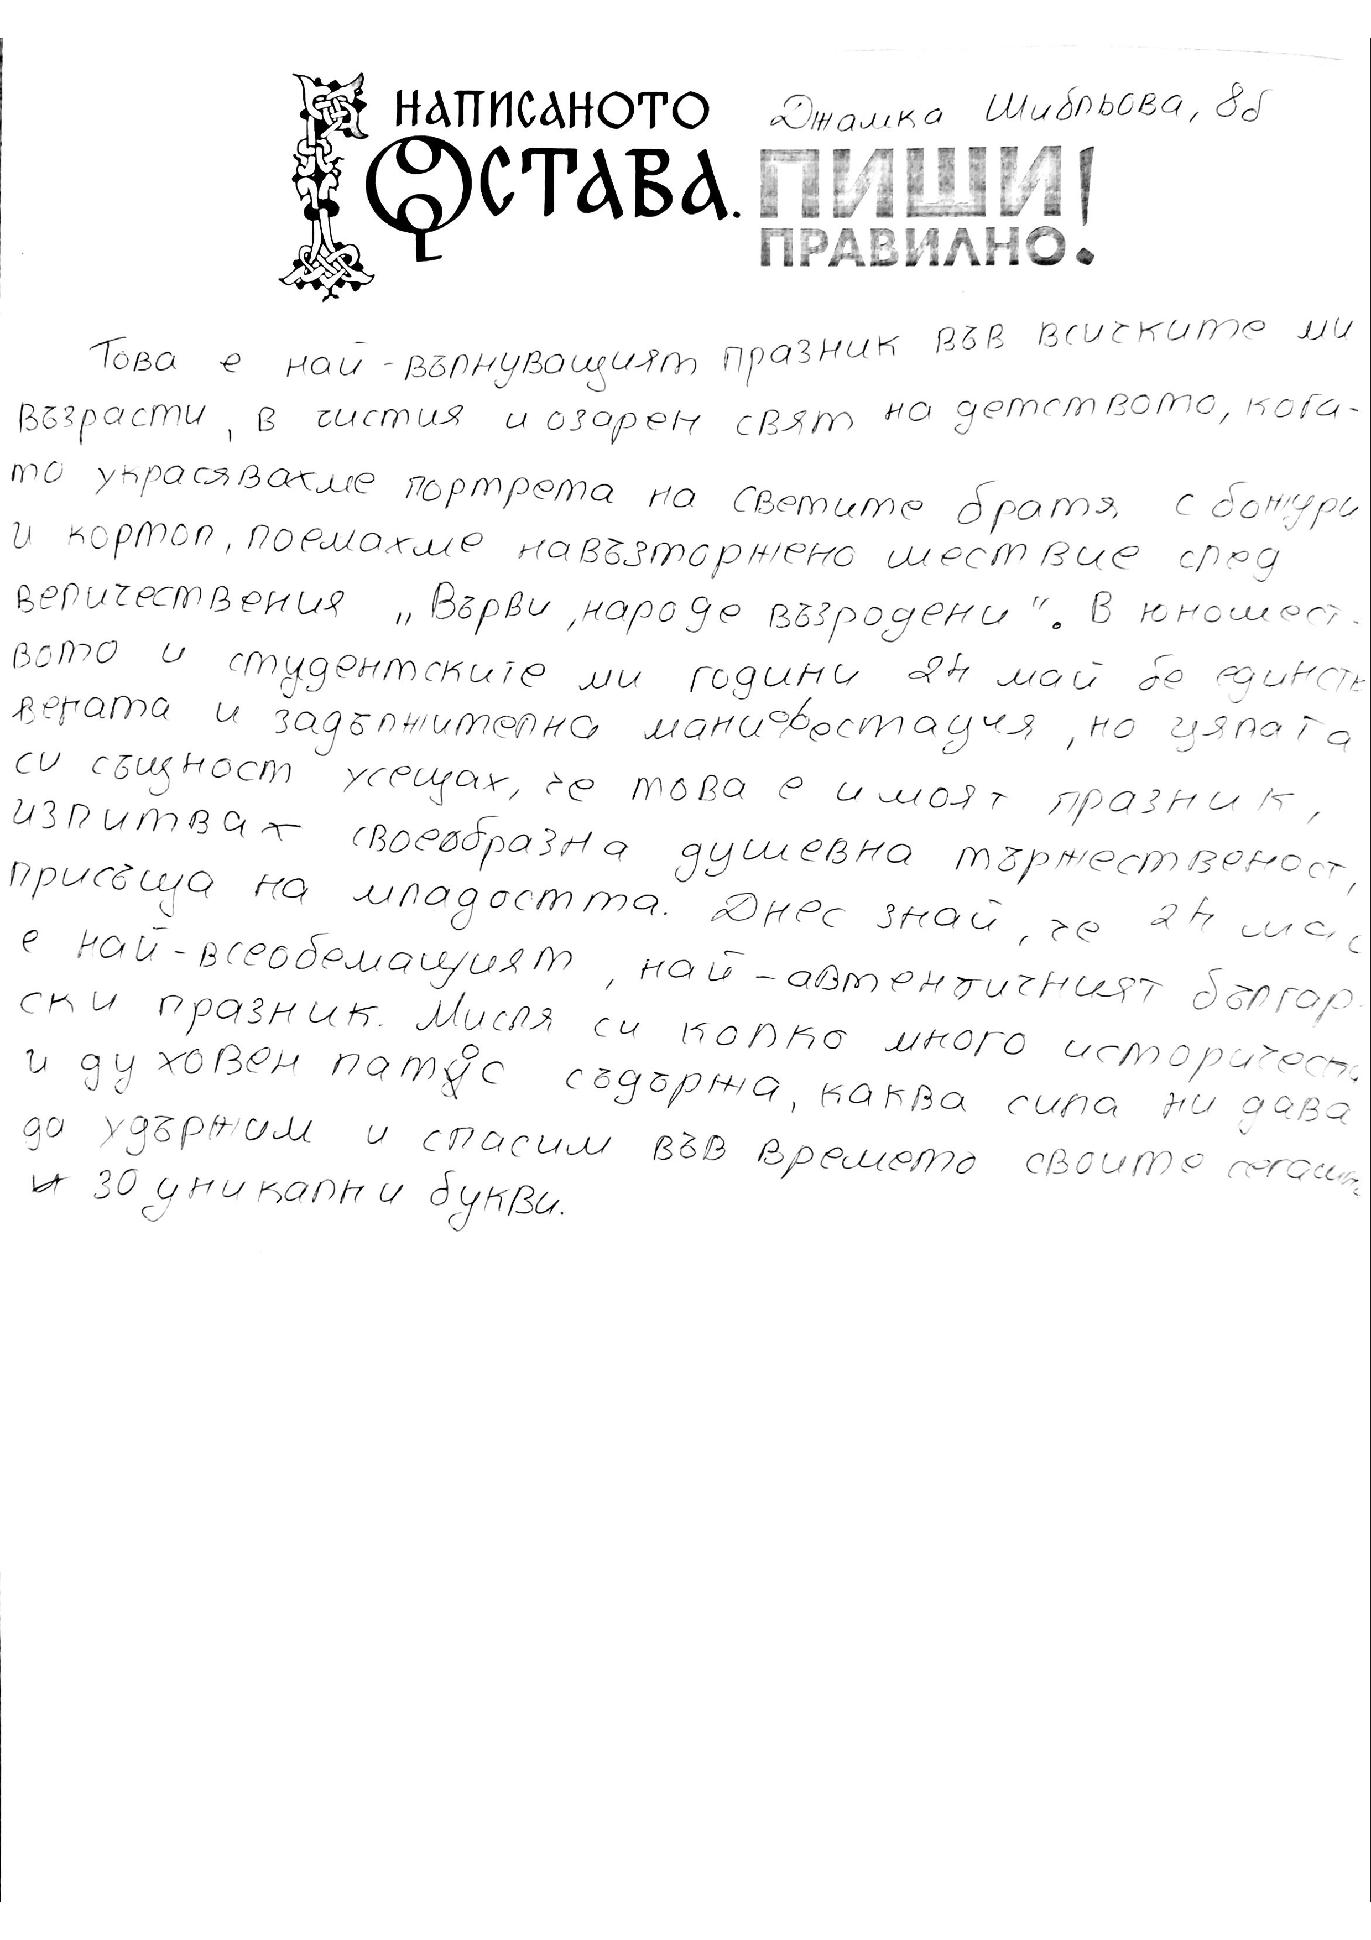 НАПИСАНОТО
ОСТАВА.
Джамка Шибльова, 8б
ПИШИ!
ПРАВИЛНО!
Това е най-вълнуващият празник във всичките ми
възрасти, в чистия и озарен свят на детството, кога-
то украсявахме портрета на Светите братя с божури
и кортоп, поемахме навъзторжено шествие сред
величествения „Върви, народе възродени". В юношест-
вото и студентските ми години 24 май бе единств
вената и задължителна манифестация, но цялата
си същност усещах, че това е и моят празник,
изпитвах своеобразна душевна тържественост,
присъща на младостта. Днес знай, че 24
е най-всеобемащият, най-автентичният българ-
ски празник. Мисля си колко много историческ
и духовен патос съдържа, каква сила ни дава
да удържим и спасим във времето своите
30 уникални букви.